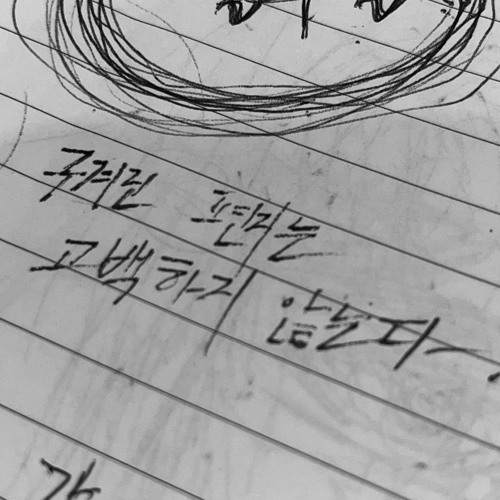 구겨진 편지는
고백하지 않는다.